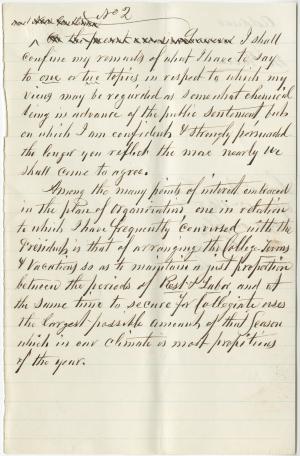 No 2
I shall
confine my remarks of what I have to say
to one or two topics in respect to which my
views may be regarded as somewhat chimerical
being in advance of the public sentiment, but
on which I am confident & strongly persuaded
the longer you reflect the more nearly we
shall come to agree.
Among the many points of interest embraced
in the plan of Organization, one in relation
to which I have frequently conversed with the
President, is that of arranging the College Terms
& Vacations so as to maintain a just proportion
between the periods of Rest & Labor and at
the same time to secure for Collegiate uses
the largest possible amount of that Season
which in our climate is most propitious
of the year.